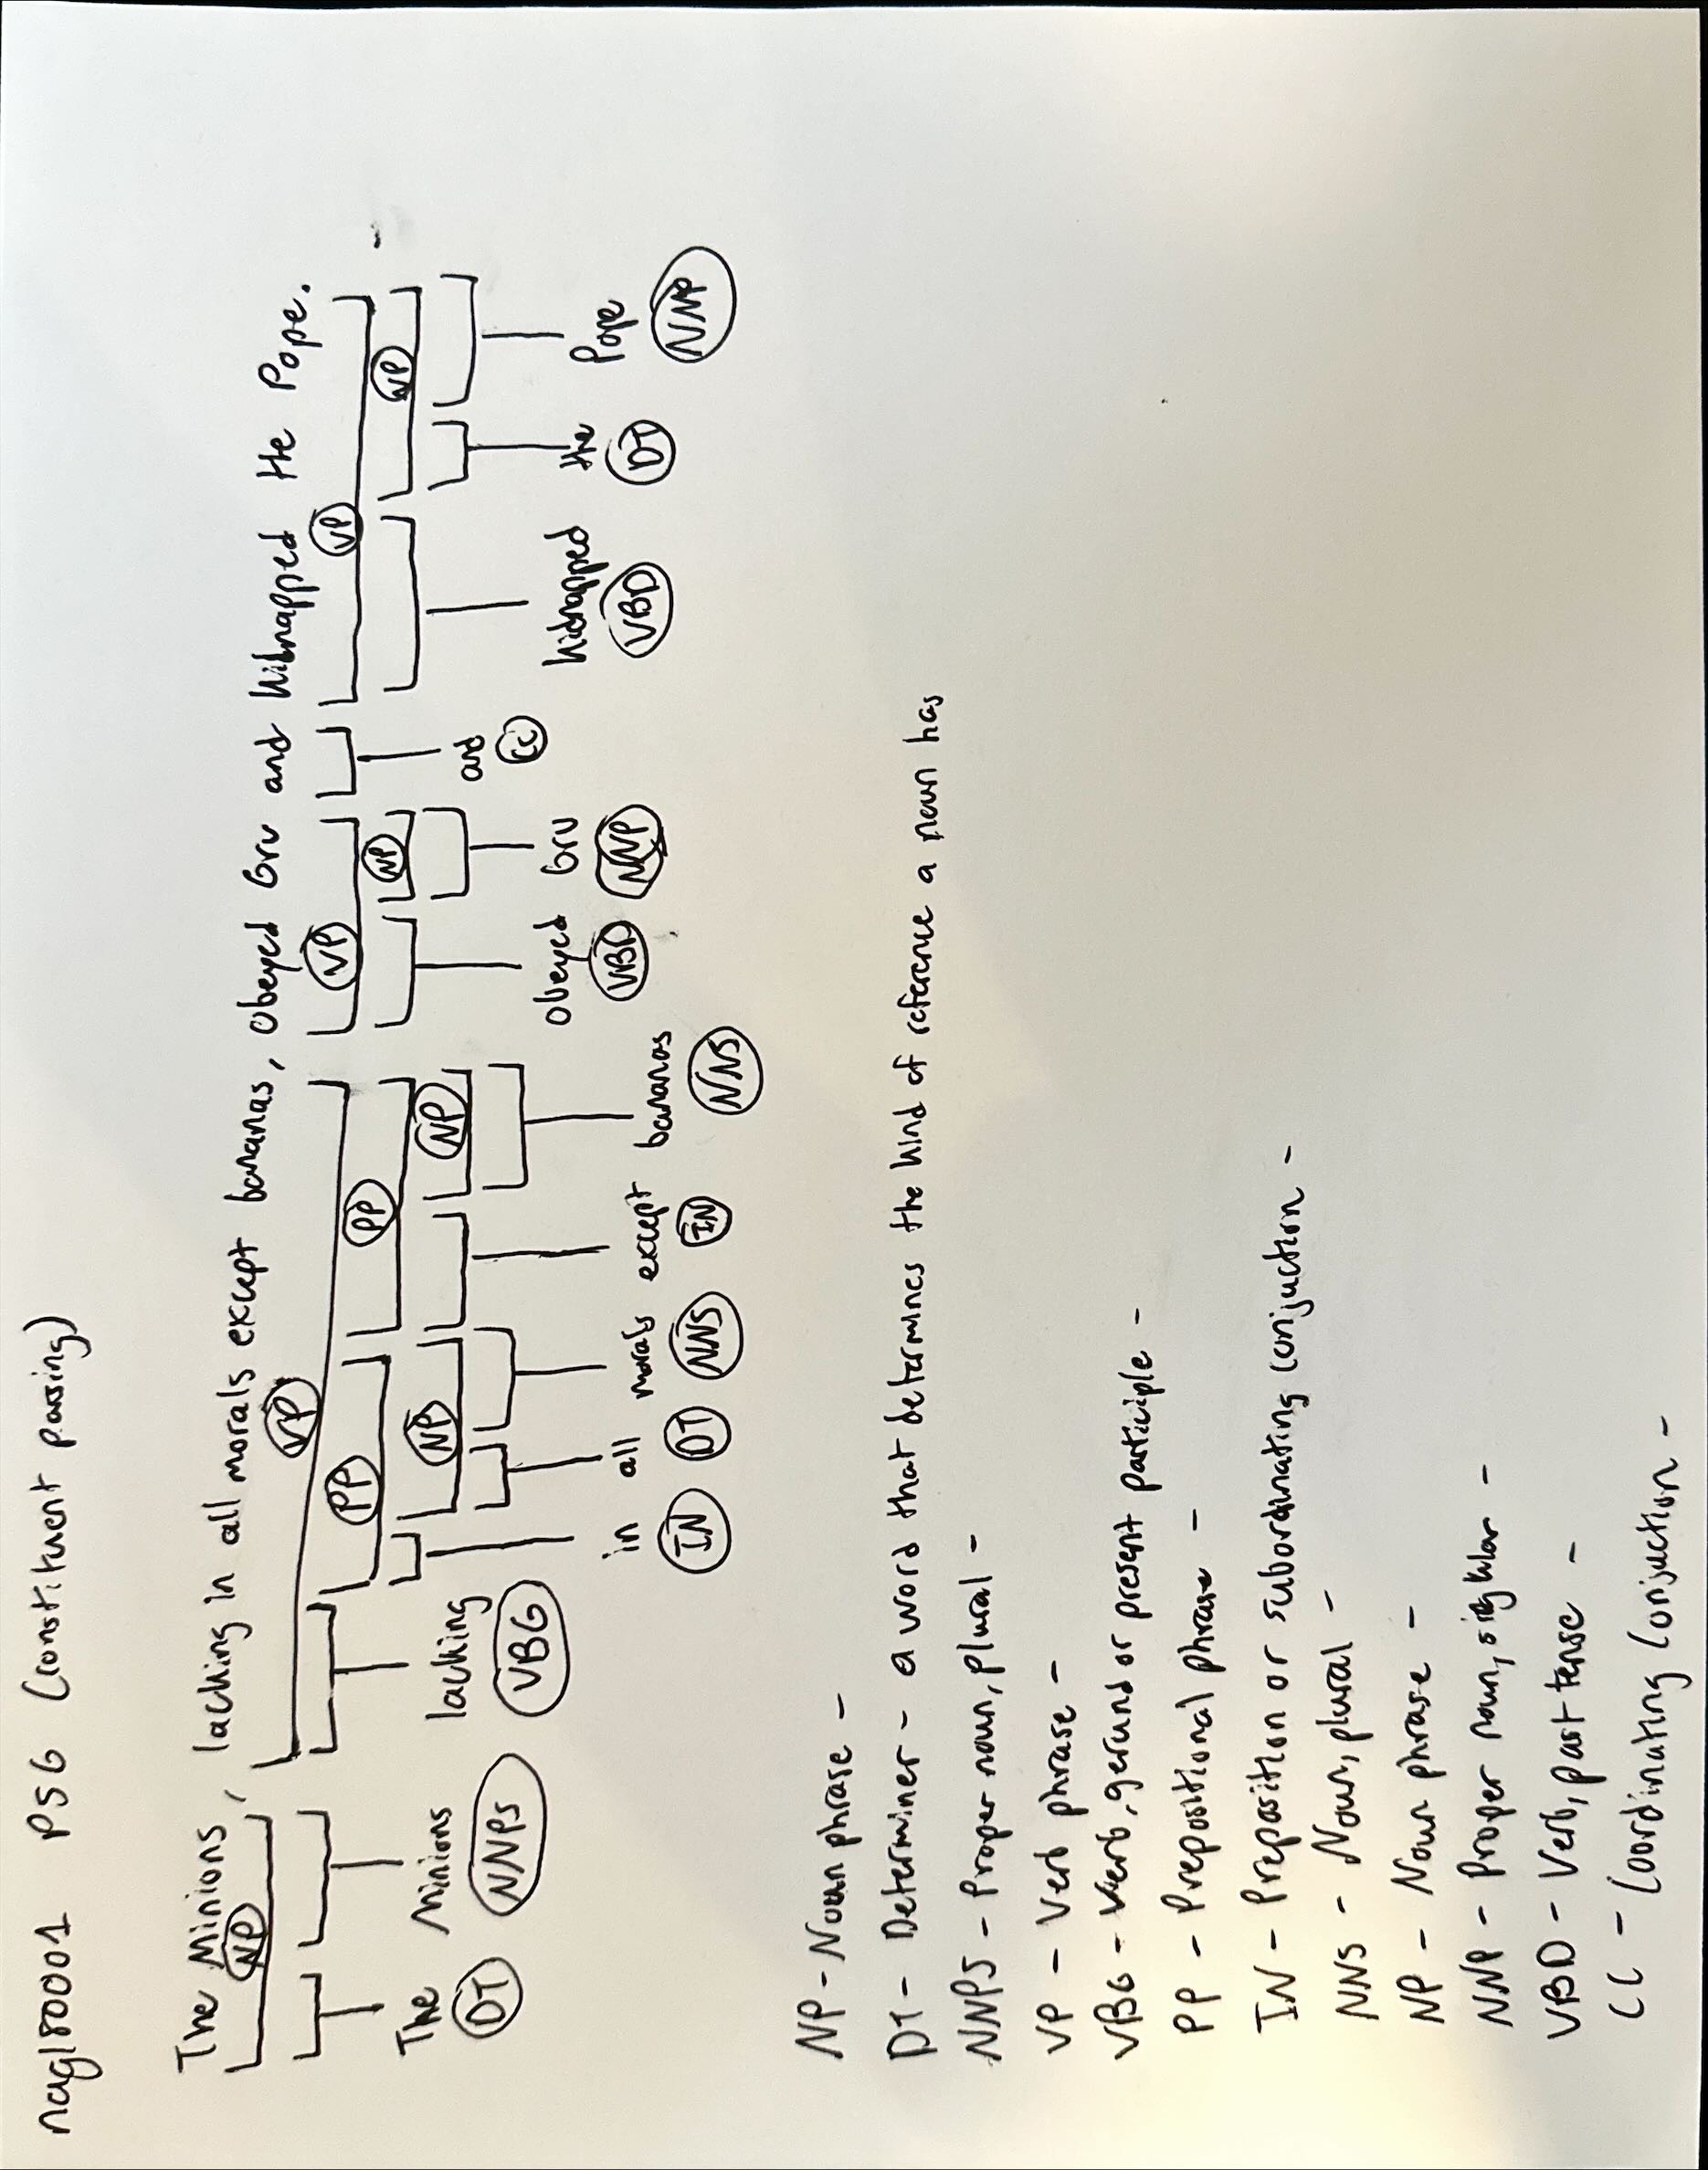 nag180001 PSG (constituent parsing)
The Minions, lacking in all morals except bananas, obeyed Gru and kidnapped the Pope.
NP VP VP VP
PP PP NP NP
NP NP
The Minions lacking in all morals except bananas obeyed Gru and kidnapped the Pope
DT NNPS VBG IN DT NNS IN NNS VBD NNP CC VBD DT NNP
NP - Noun phrase -
DT - Determiner - a word that determines the kind of reference a noun has
NNPS - Proper noun, plural -
VP - Verb phrase -
VBG - Verb, gerund or present participle -
PP - Prepositional phrase -
IN - Preposition or subordinating conjuction -
NNS - Noun, plural -
NP - Noun phrase -
NNP - Proper noun, singular -
VBD - Verb, past tense -
CC - Coordinating Conjuction -